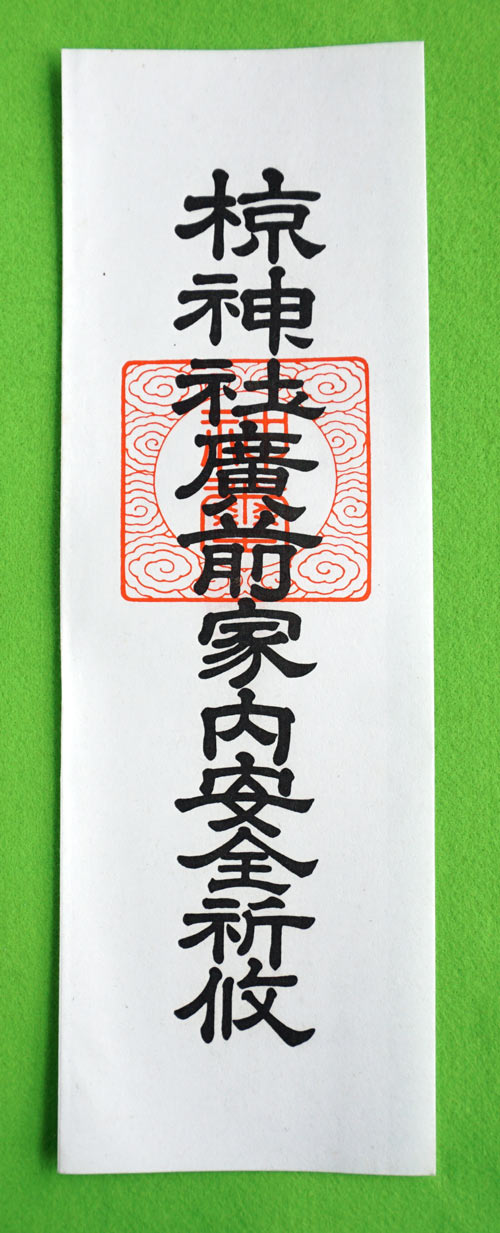 椋神社廣前家内安全祈攸